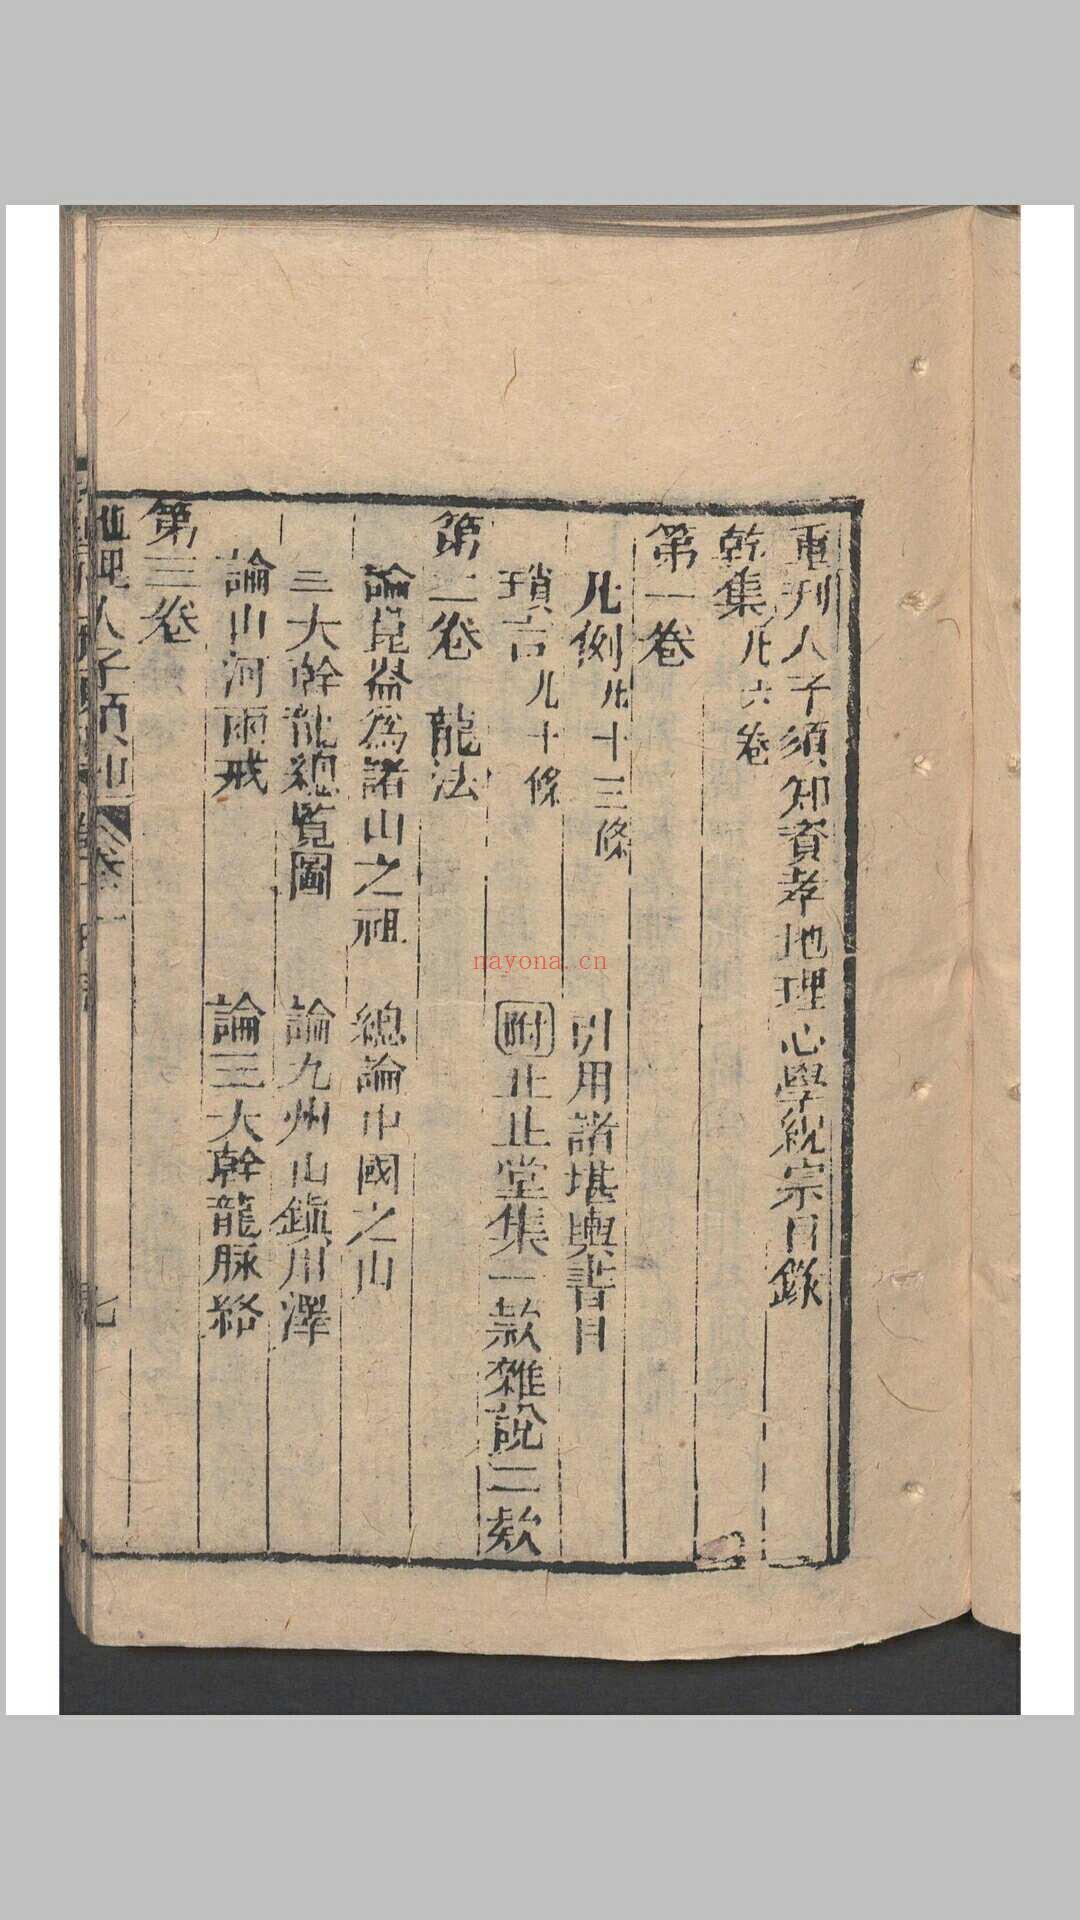 重刊人子須知資孝地理心學統宗目錄
乾集凡六卷
第一卷
凡例凡十三條 引用諸堪輿書目
瑣言凡十條 附止止堂集一款雜說三款
第二卷 龍法
論崑崙為諸山之祖 總論中國之山
三大幹龍總覧圖 論九州山鎮川澤
論山河兩戒 論三大幹龍脉絡
第三卷
地理人子須知 卷一 七
nayona.cn